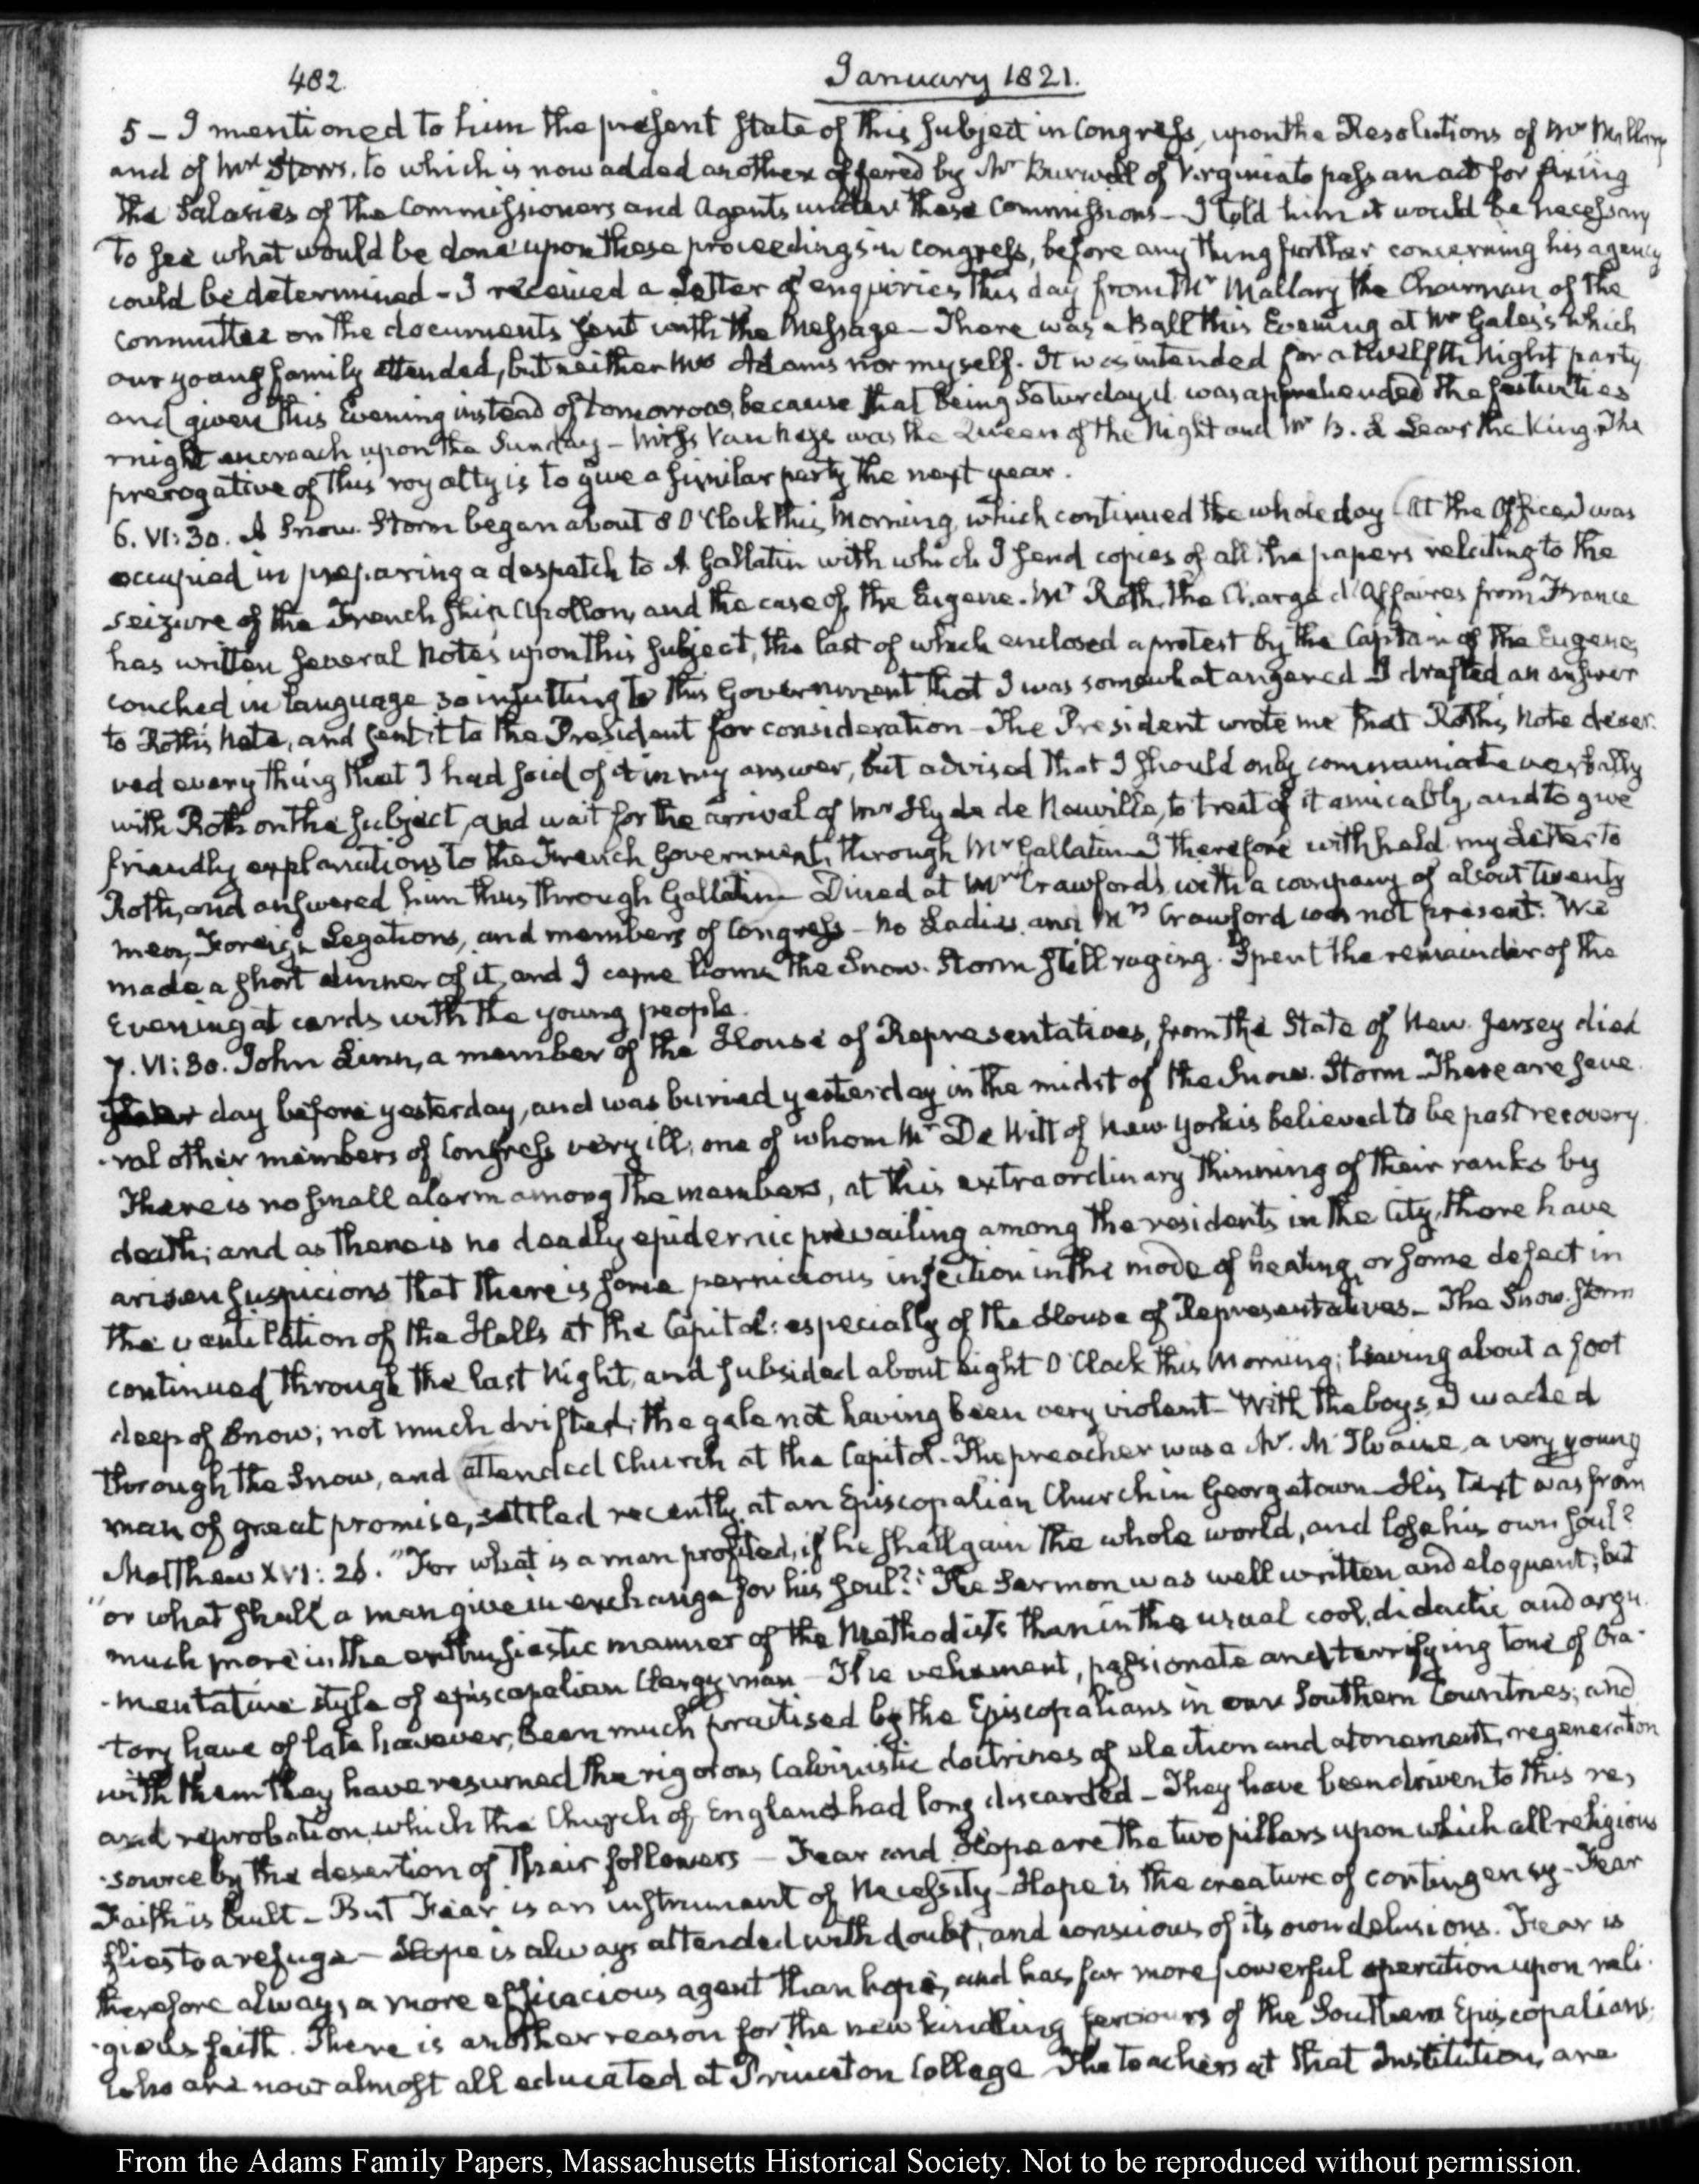 482.
January 1821.
5 - I mentioned to him the present state of this subject in Congress, upon the Resolutions of Mr Mallary
and of Mr Storrs, to which is now added another offered by Mr Burwell of Virginia to pass an act for fixing
the Salaries of the Commissioners and Agents under these Commissions - I told him it would be necessary
to see what would be done upon these proceedings in Congress, before any thing further concerning his agency
could be determined - I received a Letter of enquiries this day from Mr Mallary the Chairman of the
Committee on the documents sent with the Message - There was a Ball this Evening at Mr Gales's which
our young family attended, but neither Mrs Adams nor myself. It was intended for a twelfth Night party
and given this Evening instead of tomorrow, because that being Saturday it was apprehended the festivities
might encroach upon the Sunday - Miss Van Ness was the Queen of the Night and Mr B. Lear the King. The
prerogative of this royalty is to give a similar party the next year.
6. VI:30. A Snow-Storm began about 8 O'Clock this Morning, which continued the whole day (At the Office I was
occupied in preparing a despatch to A Gallatin with which I send copies of all the papers relating to the
seizure of the French Ship Apollon, and the case of the Eugene. Mr Roth, the Chargé d'Affaires from France
has written several Notes upon this subject, the last of which enclosed a protest by the Captain of the Eugene,
couched in language so insulting to this Government that I was somewhat angered I drafted an answer
to Roth's Note, and sent it to the President for consideration - The President wrote me that Roth's Note deser-
ved every thing that I had said of it in my answer, but advised that I should only communicate verbally
with Roth on the subject, and wait for the arrival of Mr Hyde de Neuville, to treat of it amicably, and to give
friendly explanations to the French Government, through Mr Gallatin - I therefore withheld my Letter to
Roth, and answered him thus through Gallatin - Dined at Mr Crawford's with a company of about twenty
men, Foreign Legations, and members of Congress - No Ladies, and Mrs Crawford was not present. We
made a short dinner of it, and I came home the Snow-Storm still raging. Spent the remainder of the
Evening at cards with the young people.
7. VI:30. John Linn, a member of the House of Representatives, from the State of New-Jersey died
day before yesterday, and was buried yesterday in the midst of the Snow-Storm - There are seve-
-ral other members of Congress very ill, one of whom Mr De Witt of New-York is believed to be past recovery.
There is no small alarm among the members, at this extraordinary thinning of their ranks by
death; and as there is no deadly epidemic prevailing among the residents in the City, there have
arisen suspicions that there is some pernicious infection in the mode of heating, or some defect in
the ventilation of the Halls at the Capitol: especially of the House of Representatives - The Snow-Storm
continued through the last Night, and subsided about eight O'Clock this Morning; leaving about a foot
deep of Snow; not much drifted; the gale not having been very violent - With the boys, I waded
through the Snow, and attended Church at the Capitol - The preacher was a Mr. McIlvaine, a very young
man of great promise, settled recently at an Episcopalian Church in Georgetown - His Text was from
Matthew XVI: 26. "For what is a man profited, if he shall gain the whole world, and lose his own soul?
"or what shall a man give in exchange for his soul?" The Sermon was well written and eloquent; but
much more in the enthusiastic manner of the Methodists than in the usual cool, didactic and argu-
-mentative style of episcopalian Clergyman - The vehement, passionate and terrifying tone of Ora-
-tory have of late however, been much practised by the Episcopalians in our Southern Countries; and
with them they have resumed the rigorous Calvinistic doctrines of election and atonement, regeneration
and reprobation, which the Church of England had long discarded - They have been driven to this re-
-source by the desertion of their followers - Fear and Hope are the two pillars upon which all religious
Faith is built - But Fear is an instrument of Necessity - Hope is the creature of contingency - Fear
flies to a refuge - Hope is always attended with doubt, and conscious of its own delusions. Fear is
therefore always a more efficacious agent than hope, and has far more powerful operation upon reli-
-gious faith. There is another reason for the new kindling fervours of the Southern Episcopalians,
who are now almost all educated at Princeton College - The teachers at that Institution, are
From the Adams Family Papers, Massachusetts Historical Society. Not to be reproduced without permission.